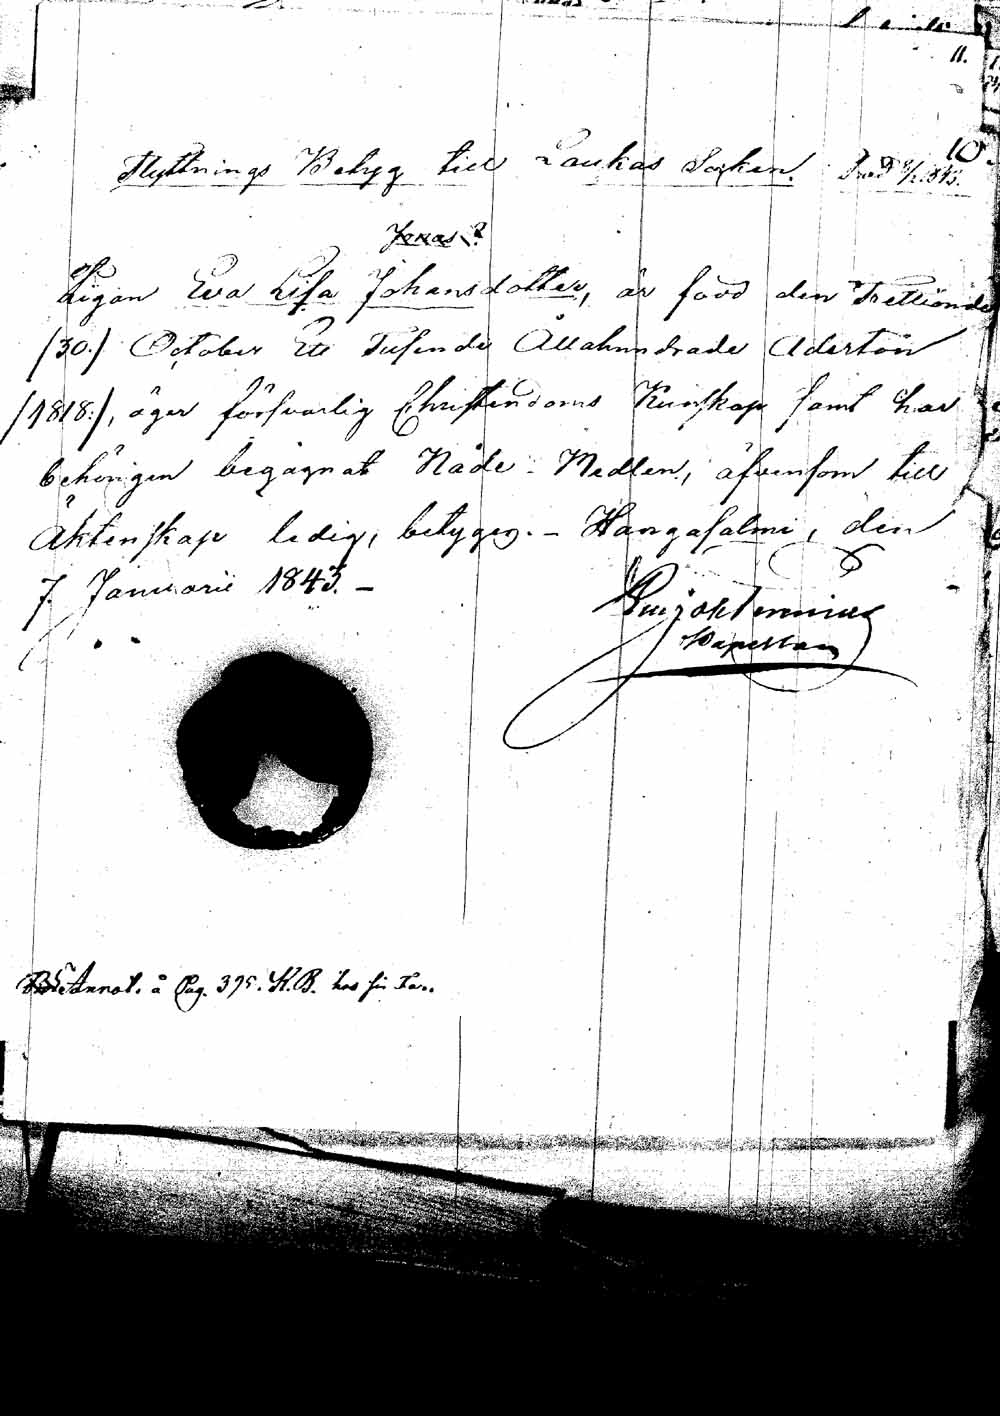 11.
10.
Flyttnings Betyg till Laukas Socken.
Jonas?
Pigan Eva Lisa Johansdotter, är född den Trettionde
/30./ October Ett Tusende Åttahundrade Aderton
/1818:/, äger försvarlig Christendoms Kunskap samt har
behörigen begagnat Nåde-Medlen, äfvensom till
Äktenskap ledig, betygas. - Hangasalmi, den
7. Januarii 1843. -
Capellan
Annot. å Pag. 395. K.B. hos sin Far.